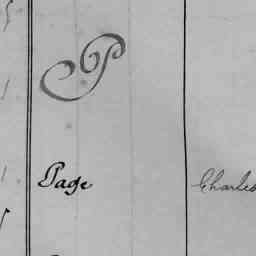 P
Page Charles